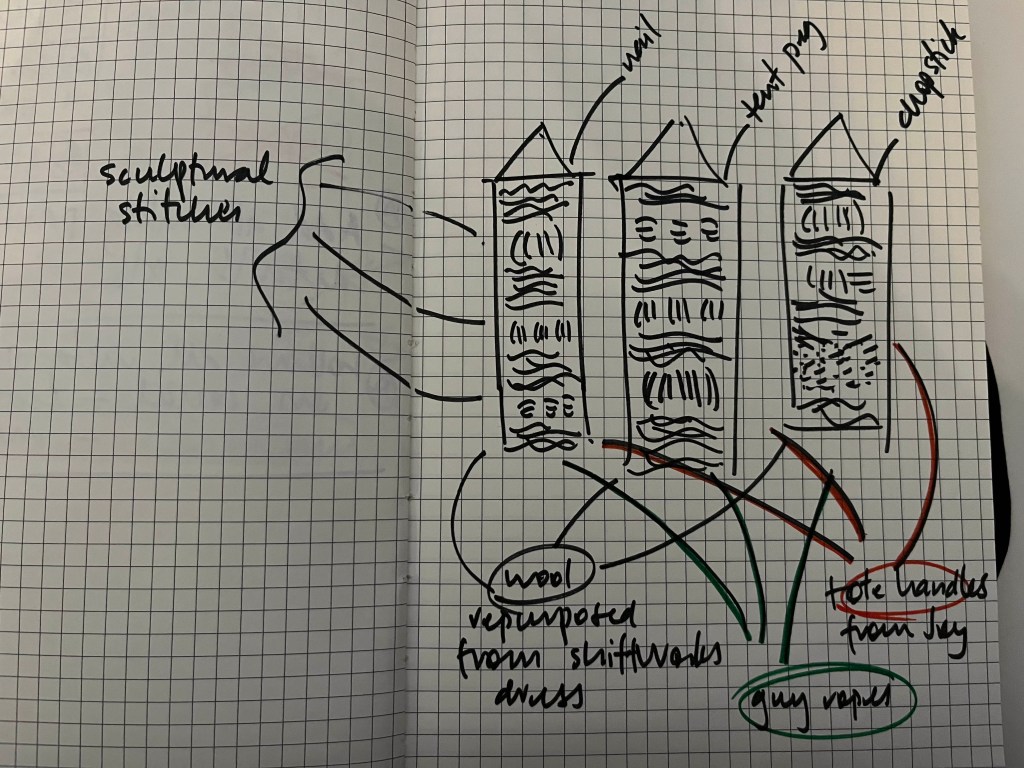 nail
tent peg
chopstick
sculptural
stitches
wool
repurposed
from shiftworks
dress
tote handles
from Jay
guy ropes